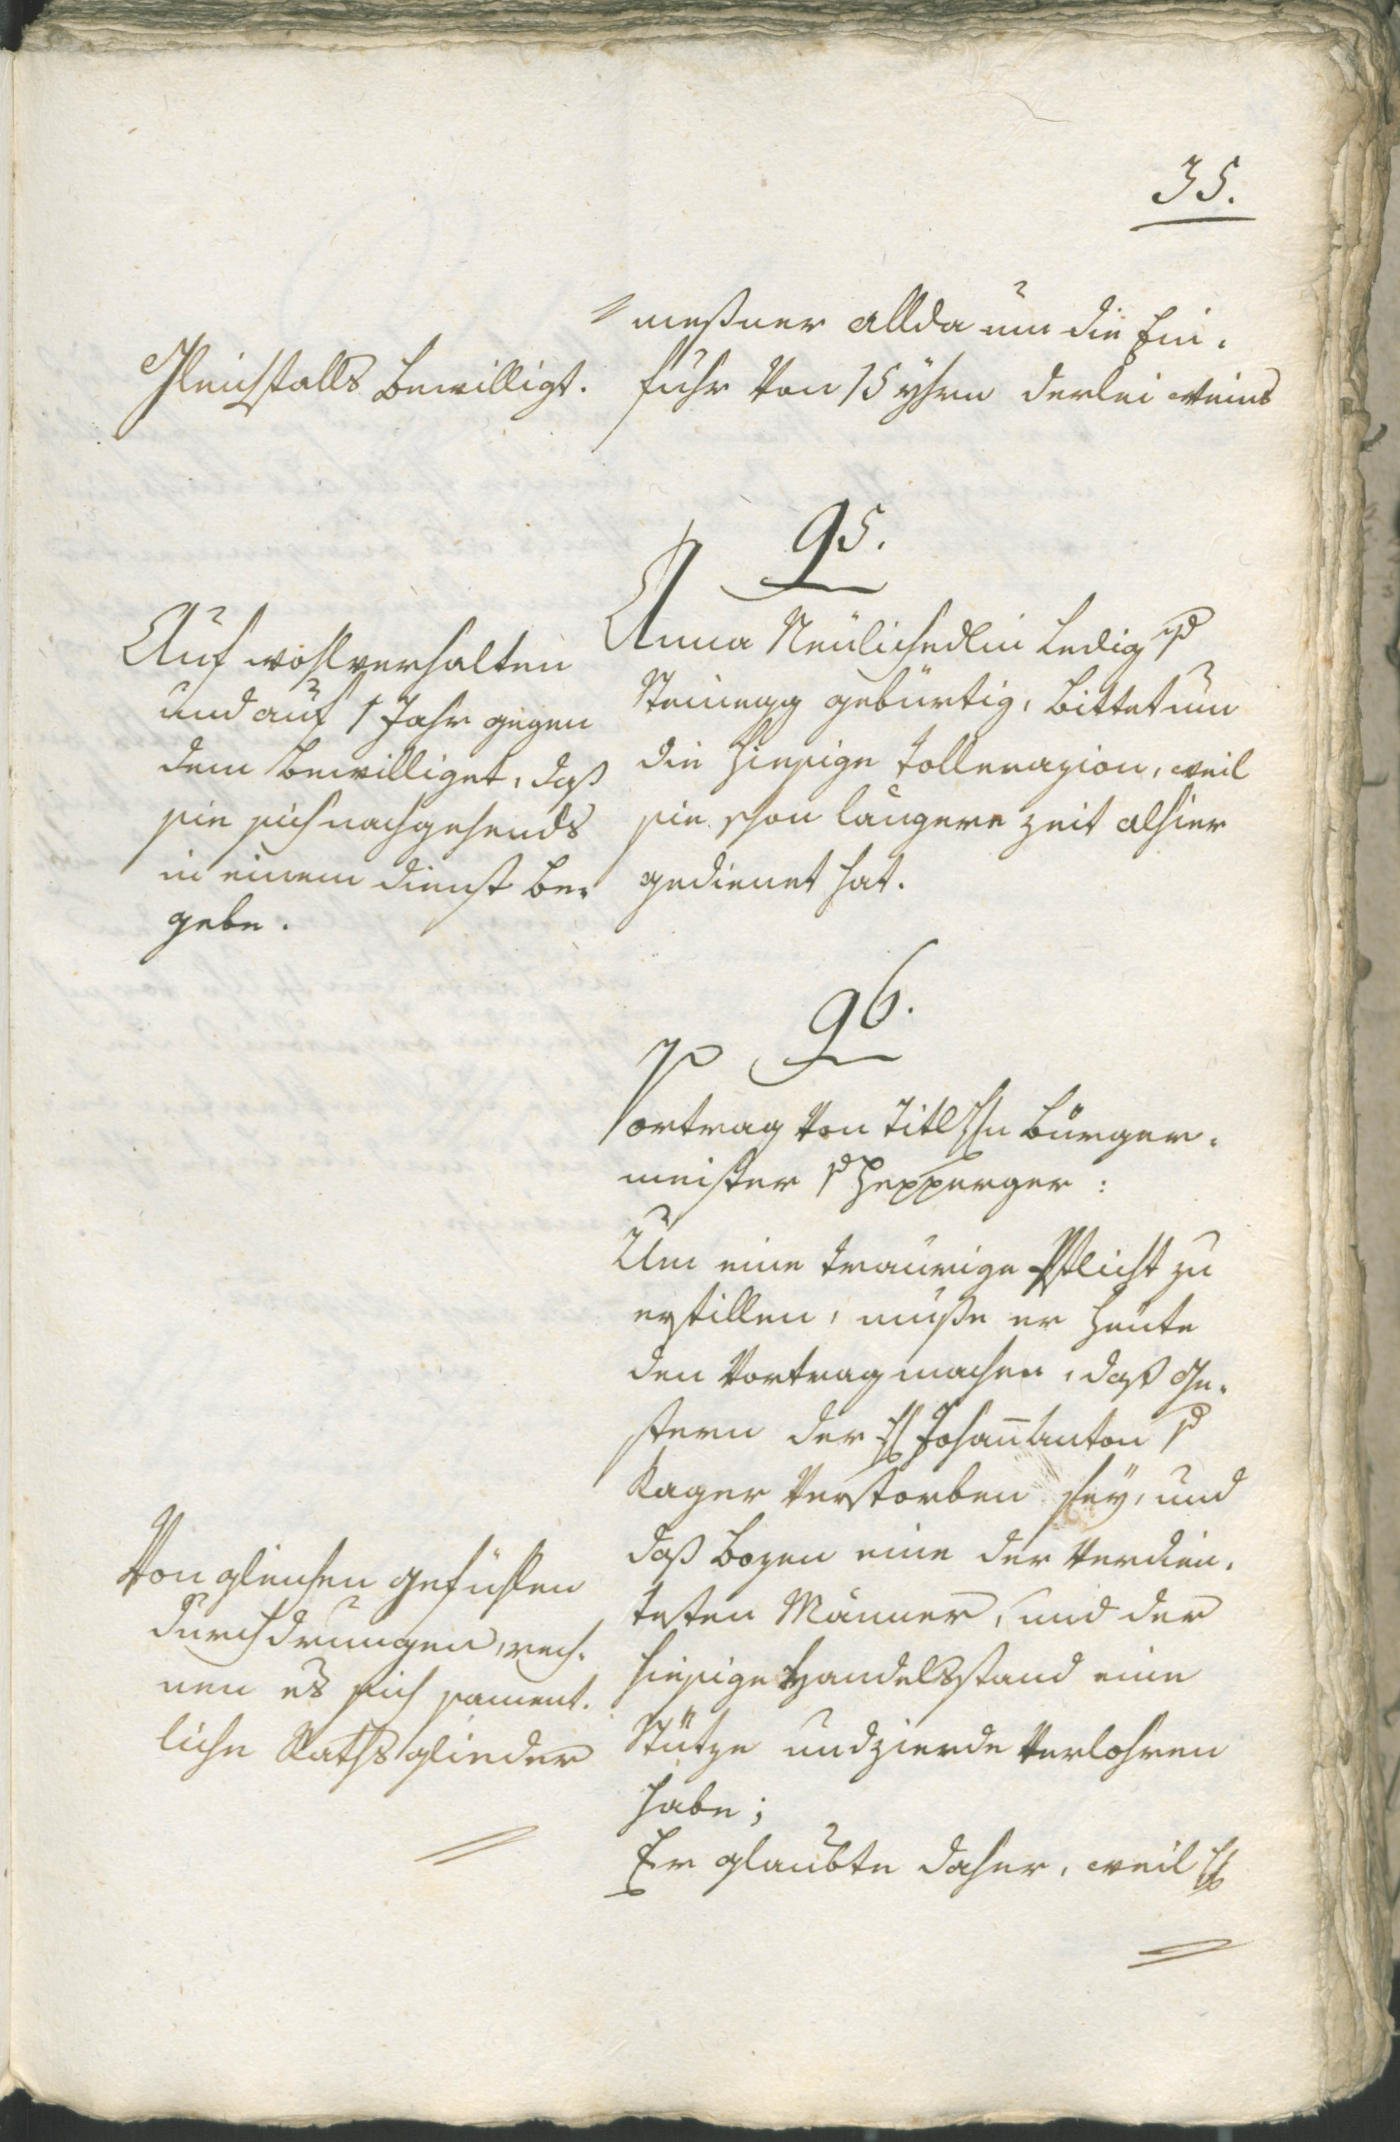 35.
meßner allda um die Ein,
fuhr von 15 yhrn derlei weins
Gleichfalls bewilligt.
95.
Anna Neulichedlin ledig v
Steinegg gebürtig, bittet um
die hiesige Tollerazion, weil
sie schon längere zeit alhier
gedienet hat.
Auf wohlverhalten
und auf 1 Jahr gegen
dem bewilliget, daß
sie sich nachgehends
in einem dienst be,
gebe.
96.
Vortrag von Titl Hn bürger,
meister v Hepperger:
Um eine traurige Pflicht zu
erfüllen, müße er heute
den Vortrag machen, daß ge,
stern der H Johann Anton v
Kager verstorben sey, und
daß bozen eine der verdien,
testen Männer, und der
hiesige Handelsstand eine
Stütze und zierde verlohren
habe;
Er glaubte daher, weil H
Von gleichen gefühlen
durchdrungen, rech,
nen es sich sament,
liche Rathsglieder